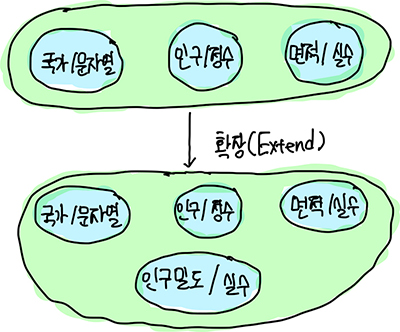 국가/문자열 인구/정수 면적/ 실수
확장(Extend)
국가/문자열 인구/정수 면적/실수
인구밀도/ 실수